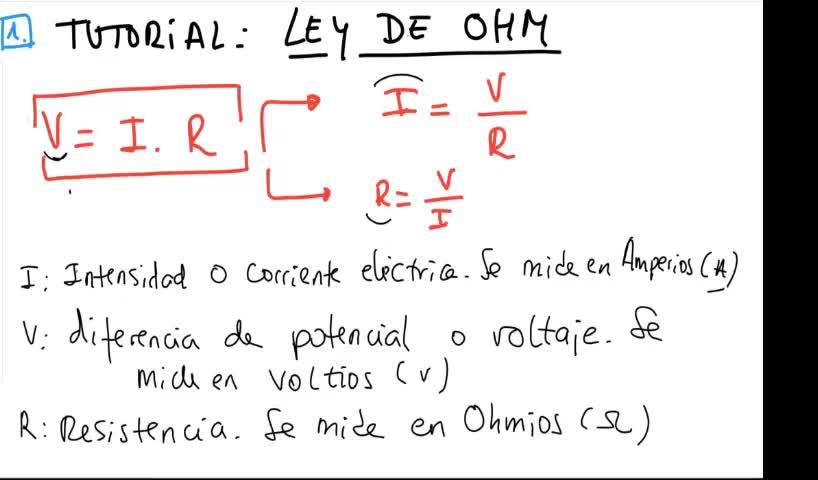 1. TUTORIAL: LEY DE OHM
V = I . R
I = V/R
R = V/I
I: Intensidad o corriente eléctrica. Se mide en Amperios (A)
V: diferencia de potencial o voltaje. Se
mide en voltios (v)
R: Resistencia. Se mide en Ohmios (Ω)